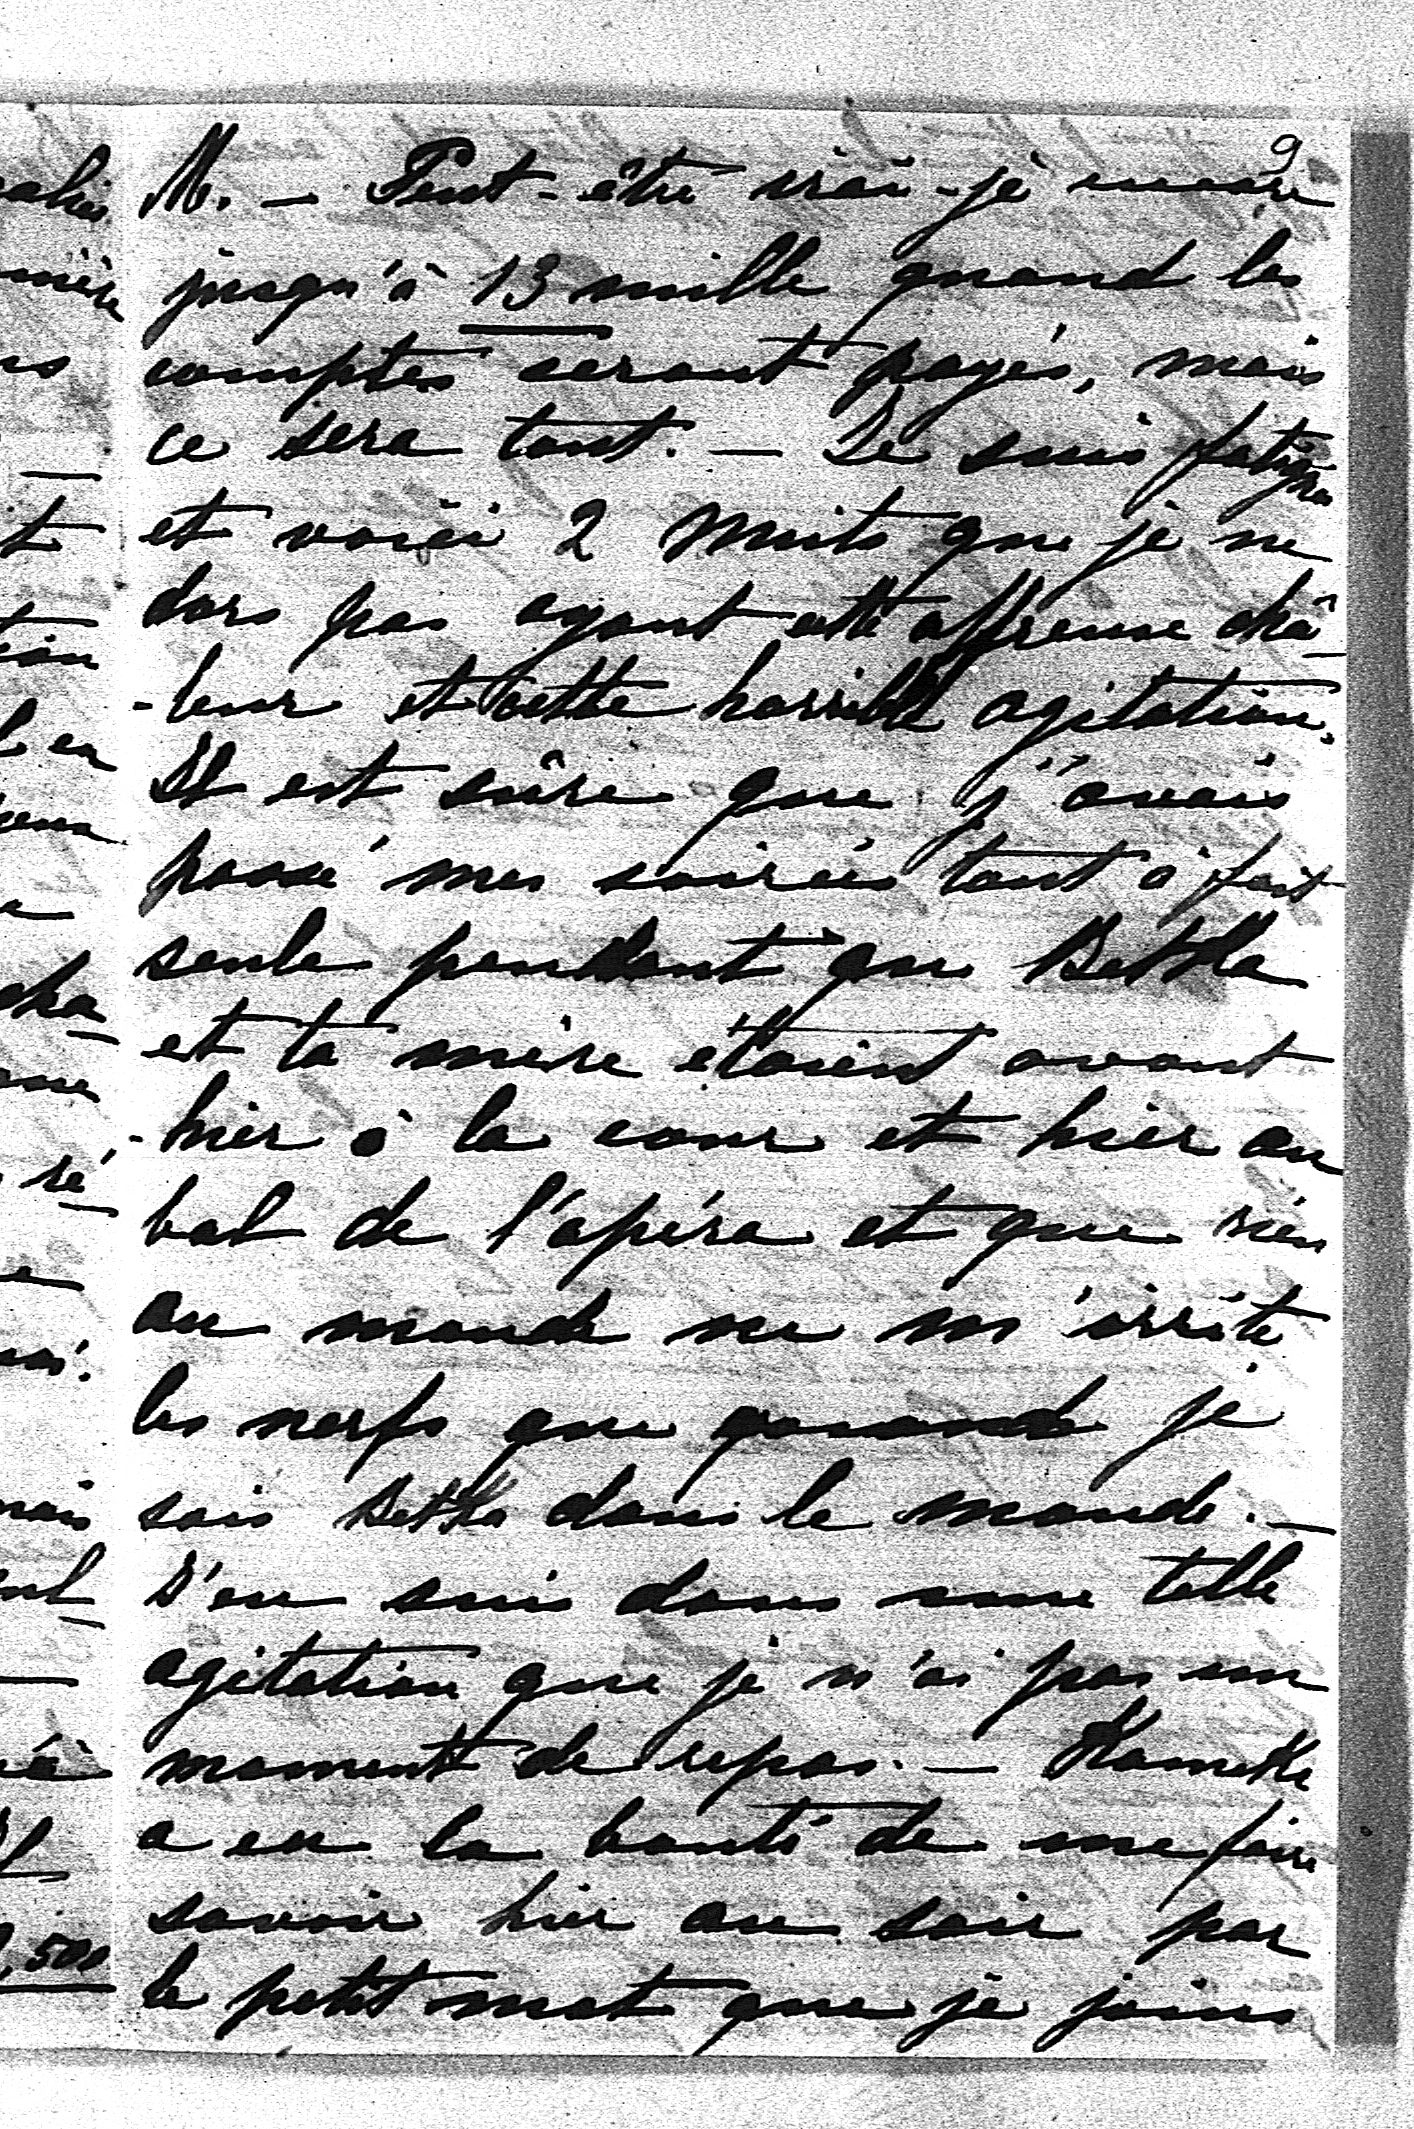 9
M. — Peut-être irai-je encore
jusqu'à 13 mille quand les
comptes seront payés, mais
ce sera tout. — Je suis fatiguée
et voici 2 Nuits que je ne
dors pas ayant cette affreuse cha-
-leur et cette horrible agitation.
Il est sûre que j'avais
passé mes soirées tout à fait
seule pendant que Betka
et ta mère étaient avant
-hier à la cour et hier au
bal de l'opéra et que rien
au monde ne m'irrite
les nerfs que quand je
sais Betka dans le monde. —
J'en suis dans une telle
agitation que je n'ai pas un
moment de repos. — Kameke
a eu la bonté de me faire
savoir hier au soir par
le petit mot que je joins